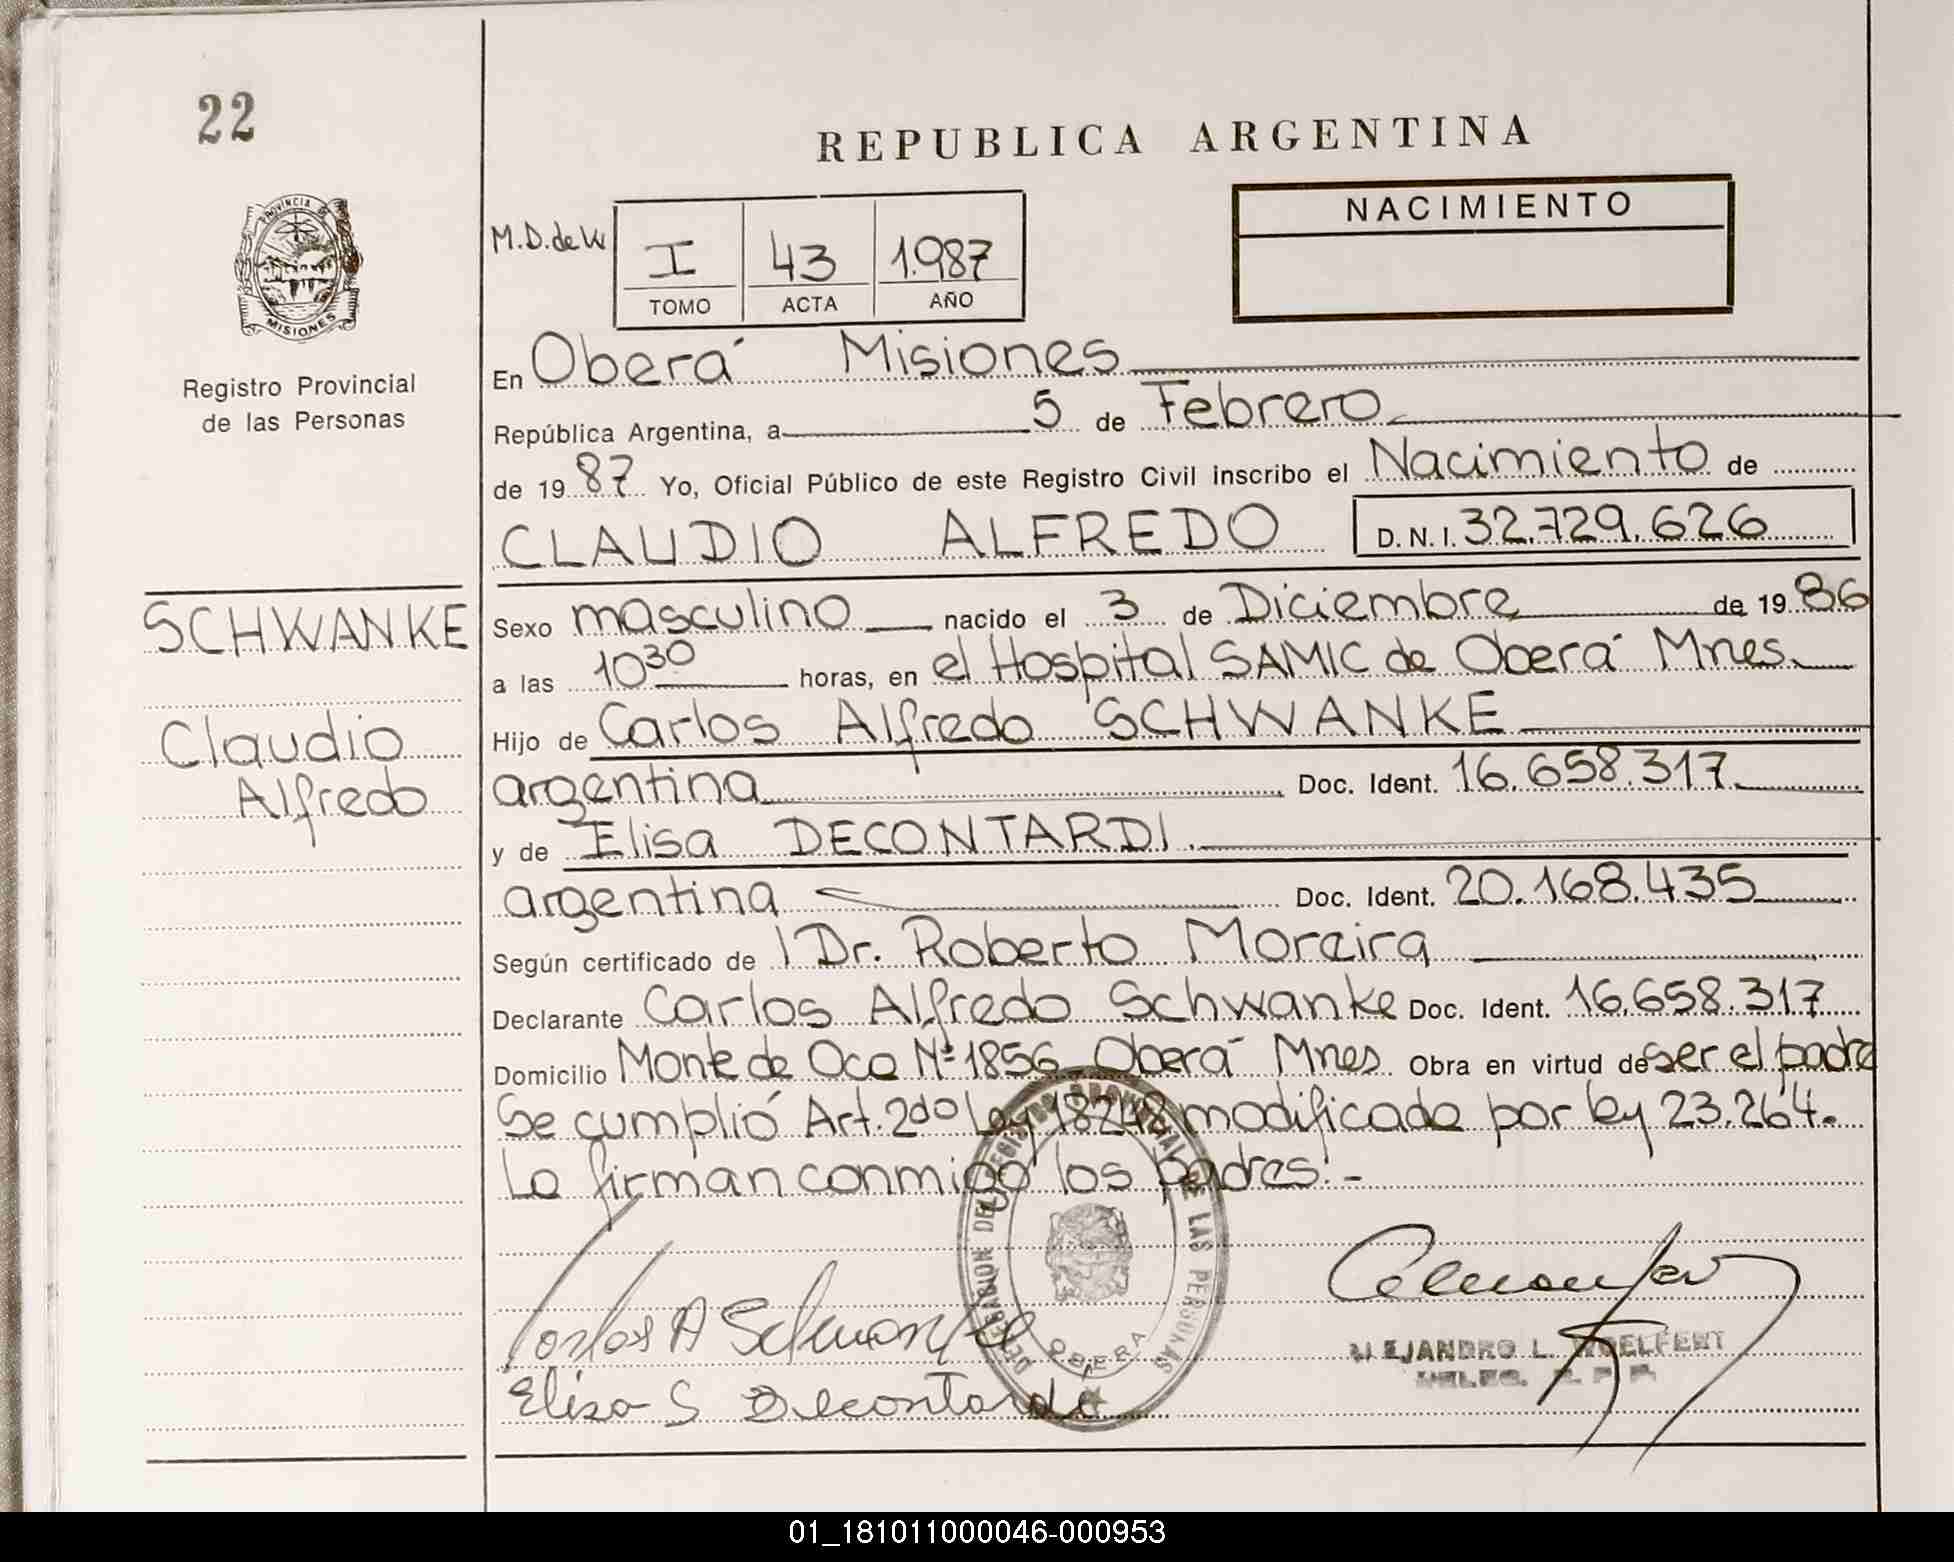 22
REPUBLICA ARGENTINA
NACIMIENTO
M.D.de W
I 43 1.987
TOMO ACTA AÑO
PROVINCIA DE
MISIONES
Registro Provincial
de las Personas
En Oberá Misiones
República Argentina, a 5 de Febrero
de 1987 Yo, Oficial Público de este Registro Civil inscribo el Nacimiento de
CLAUDIO ALFREDO D.N.I. 32.729.626
SCHWANKE
Claudio
Alfredo
Sexo masculino nacido el 3 de Diciembre de 1986
a las 10³⁰ horas, en el Hospital SAMIC de Oberá Mnes.
Hijo de Carlos Alfredo SCHWANKE
argentina Doc. Ident. 16.658.317
y de Elisa DECONTARDI.
argentina Doc. Ident. 20.168.435
Según certificado de l Dr. Roberto Moreira
Declarante Carlos Alfredo Schwanke Doc. Ident. 16.658.317
Domicilio Monte de Oca Nº 1856 Oberá Mnes Obra en virtud de ser el padre
Se cumplió Art. 2do Ley 18248 modificada por ley 23.264.
La firman conmigo los padres.-
DELEGACION DEL REGISTRO PROVINCIAL DE LAS PERSONAS
OBERA
Carlos A Schwanke
Elisa S Decontardi
ALEJANDRO L. WOELFERT
DELEG. R. P. P.
01_181011000046-000953